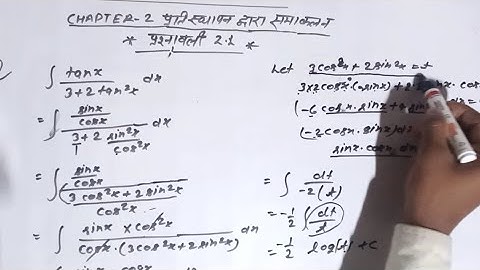 CHAPTER-2 प्रतिस्थापन द्वारा समाकलन
* प्रश्नावली 2.1 *
∫ tanx / 3+2tan²x dx
= ∫ (sinx/cosx) / (3+2 sin²x/cos²x) dx
= ∫ (sinx/cosx) / ((3cos²x+2sin²x)/cos²x)
= ∫ sinx × cos²x / cosx·(3cos²x+2sin²x) dx
Let 3cos²x+2sin²x = t
3×2cosx·(-sinx)+2· sinx· cos
(-6cosx·sinx+4 sin
(-2cosx·sinx)
sinx·cosx dx
= ∫ dt / -2(t)
= -1/2 ∫ dt/t
= -1/2 log(t)+c